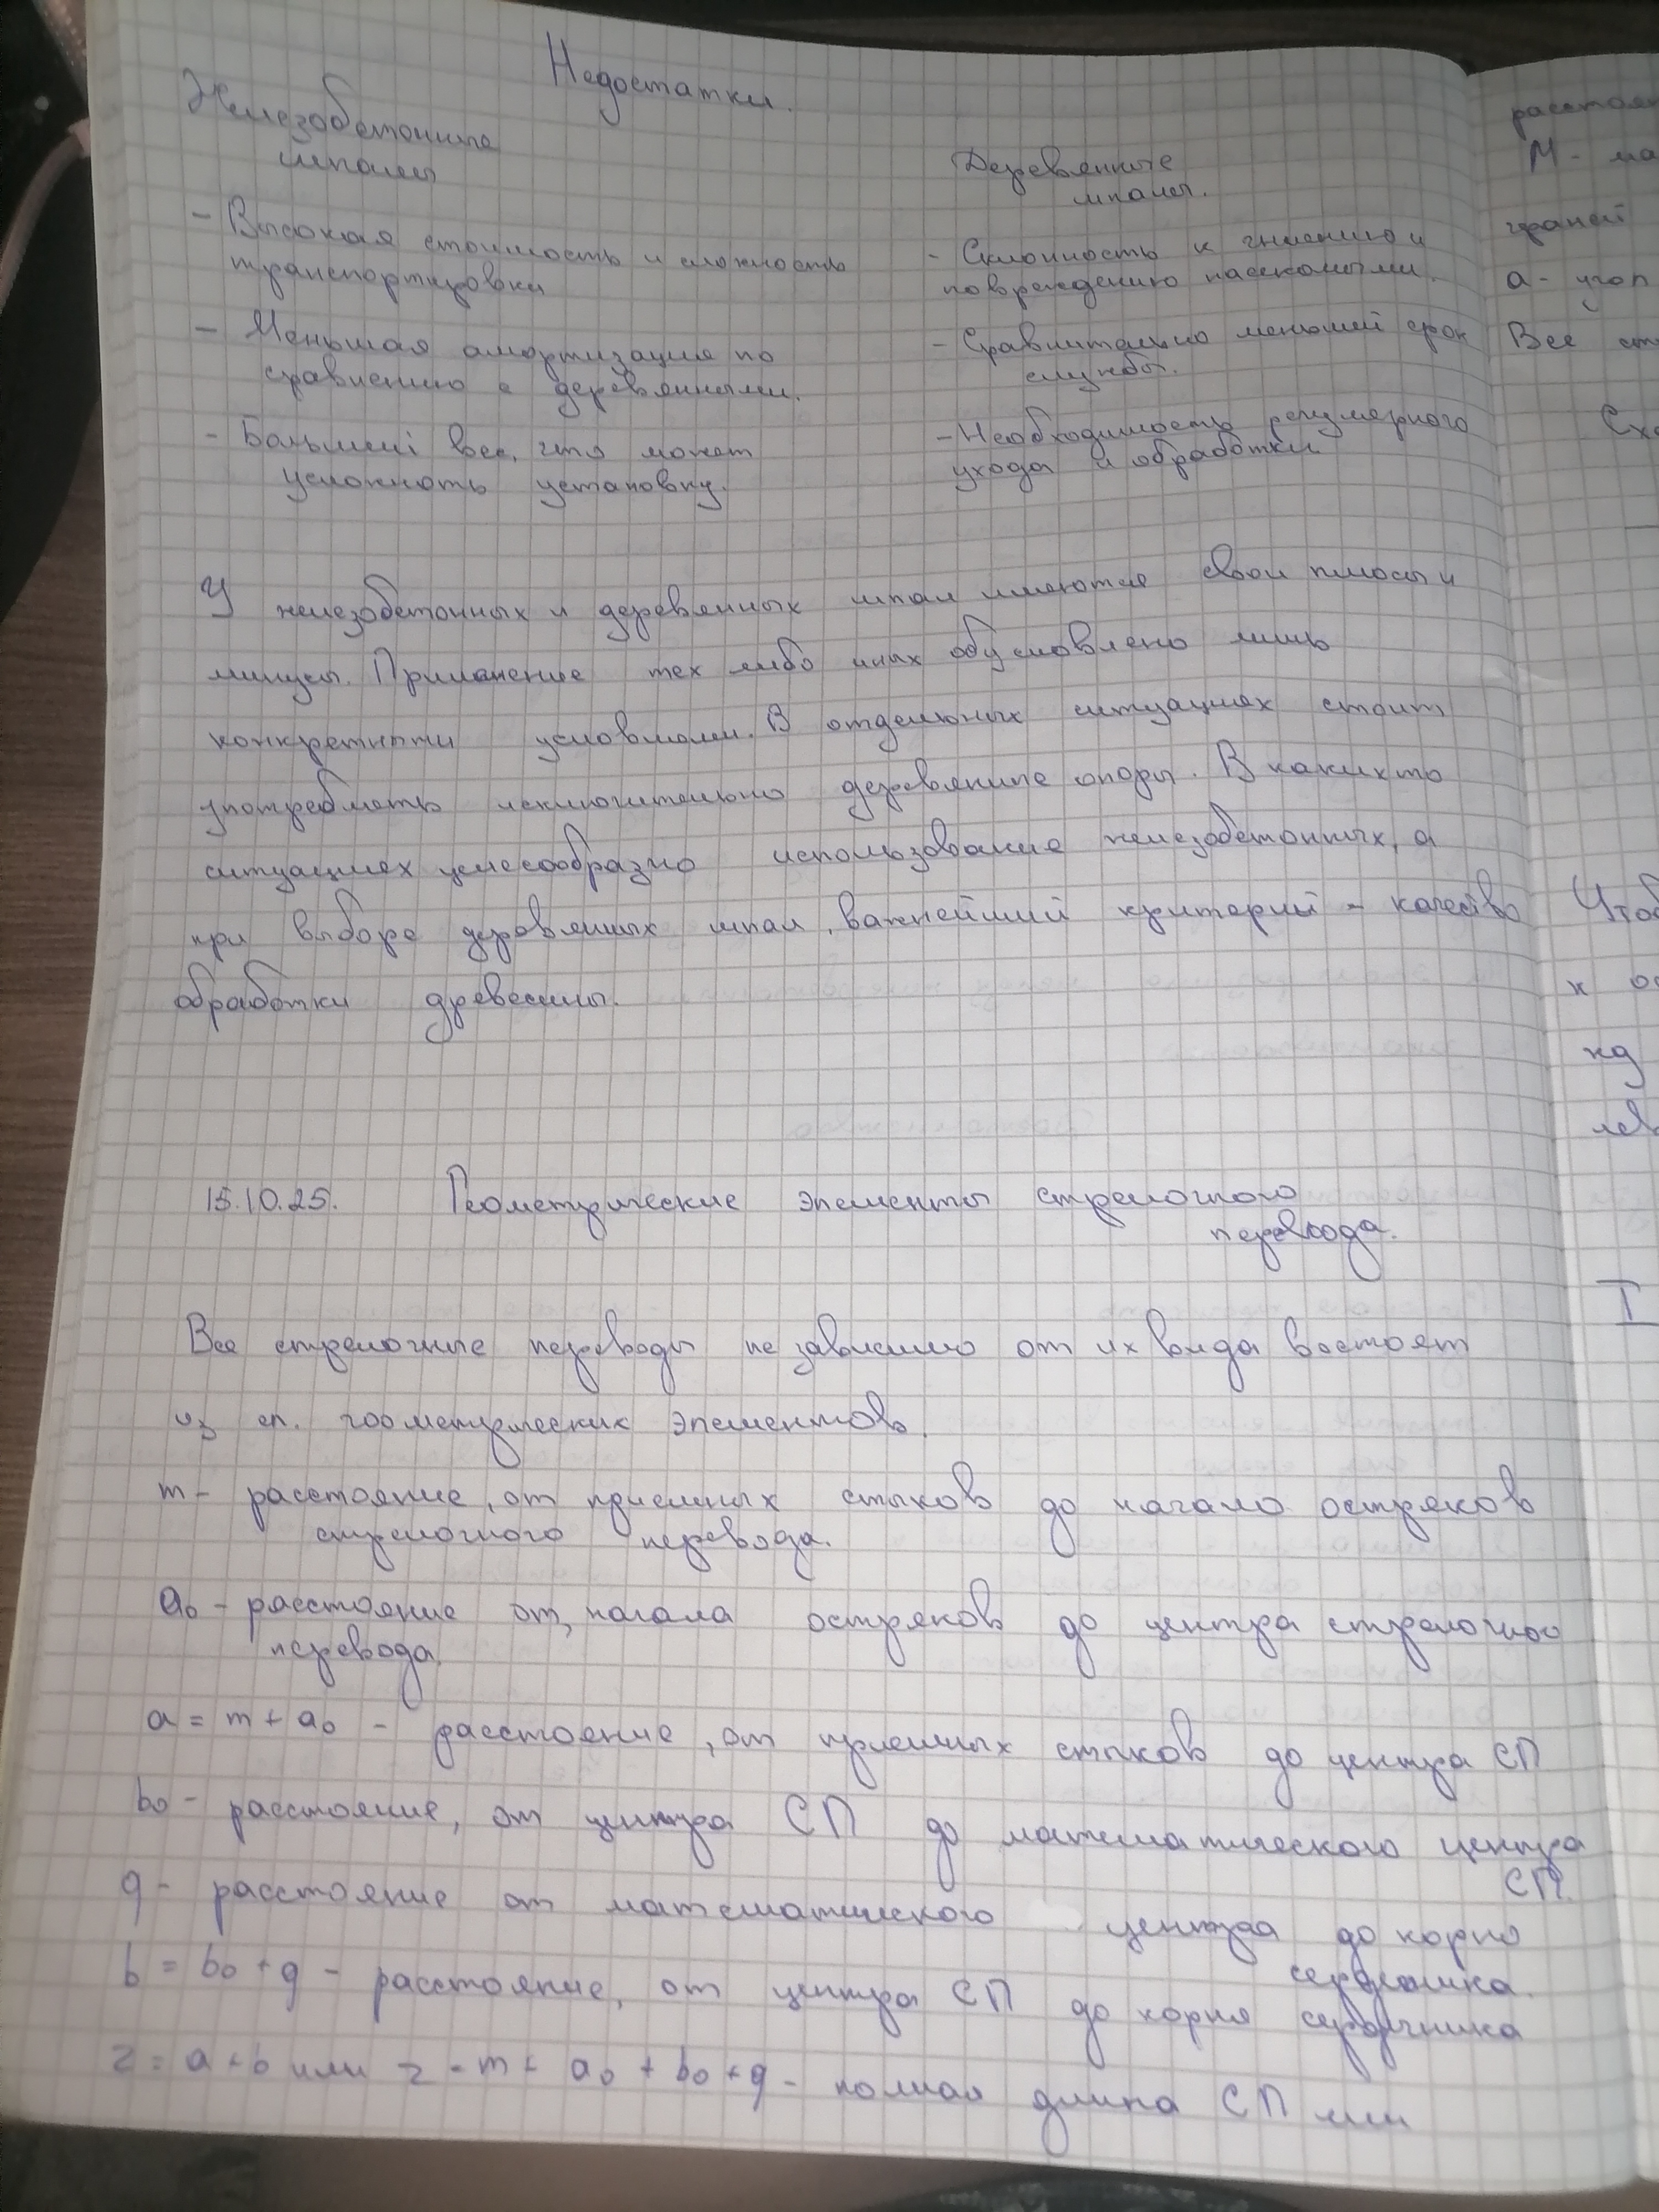 Недостатки.
Железобетонные
шпалы
- Высокая стоимость и сложность
транспортировки
- Меньшая амортизация по
сравнению с деревянными.
- Больший вес, что может
усложнять установку.
Деревянные
шпалы.
- Склонность к гниению и
повреждению насекомыми.
- Сравнительно меньший срок
службы.
- Необходимость регулярного
ухода и обработки
У железобетонных и деревянных шпал имеются свои плюсы и
минусы. Применение тех либо иных обусловлено лишь
конкретными условиями. В отдельных ситуациях стоит
употреблять исключительно деревянные опоры. В каких то
ситуациях целесообразно использование железобетонных, а
при выборе деревянных шпал, важнейший критерий - качество
обработки древесины.
15.10.25. Геометрические элементы стрелочного
перевода.
Все стрелочные переводы не зависимо от их вида востоят
из сл. геометрических элементов.
m - расстояние, от приемных стыков до начало остряков
стрелочного перевода.
a0 - расстояние от, начала остряков до центра стрелочного
перевода.
a = m + a0 - расстояние, от приемных стыков до центра СП
b0 - расстояние, от центра СП до математического центра
СП.
q - расстояние от математического центра до корня
сердечника.
b = b0 + q - расстояние, от центра СП до корня сердечника
z = a + b или z = m + a0 + b0 + q - полная длина СП или
M -
граней
a - угол
Все